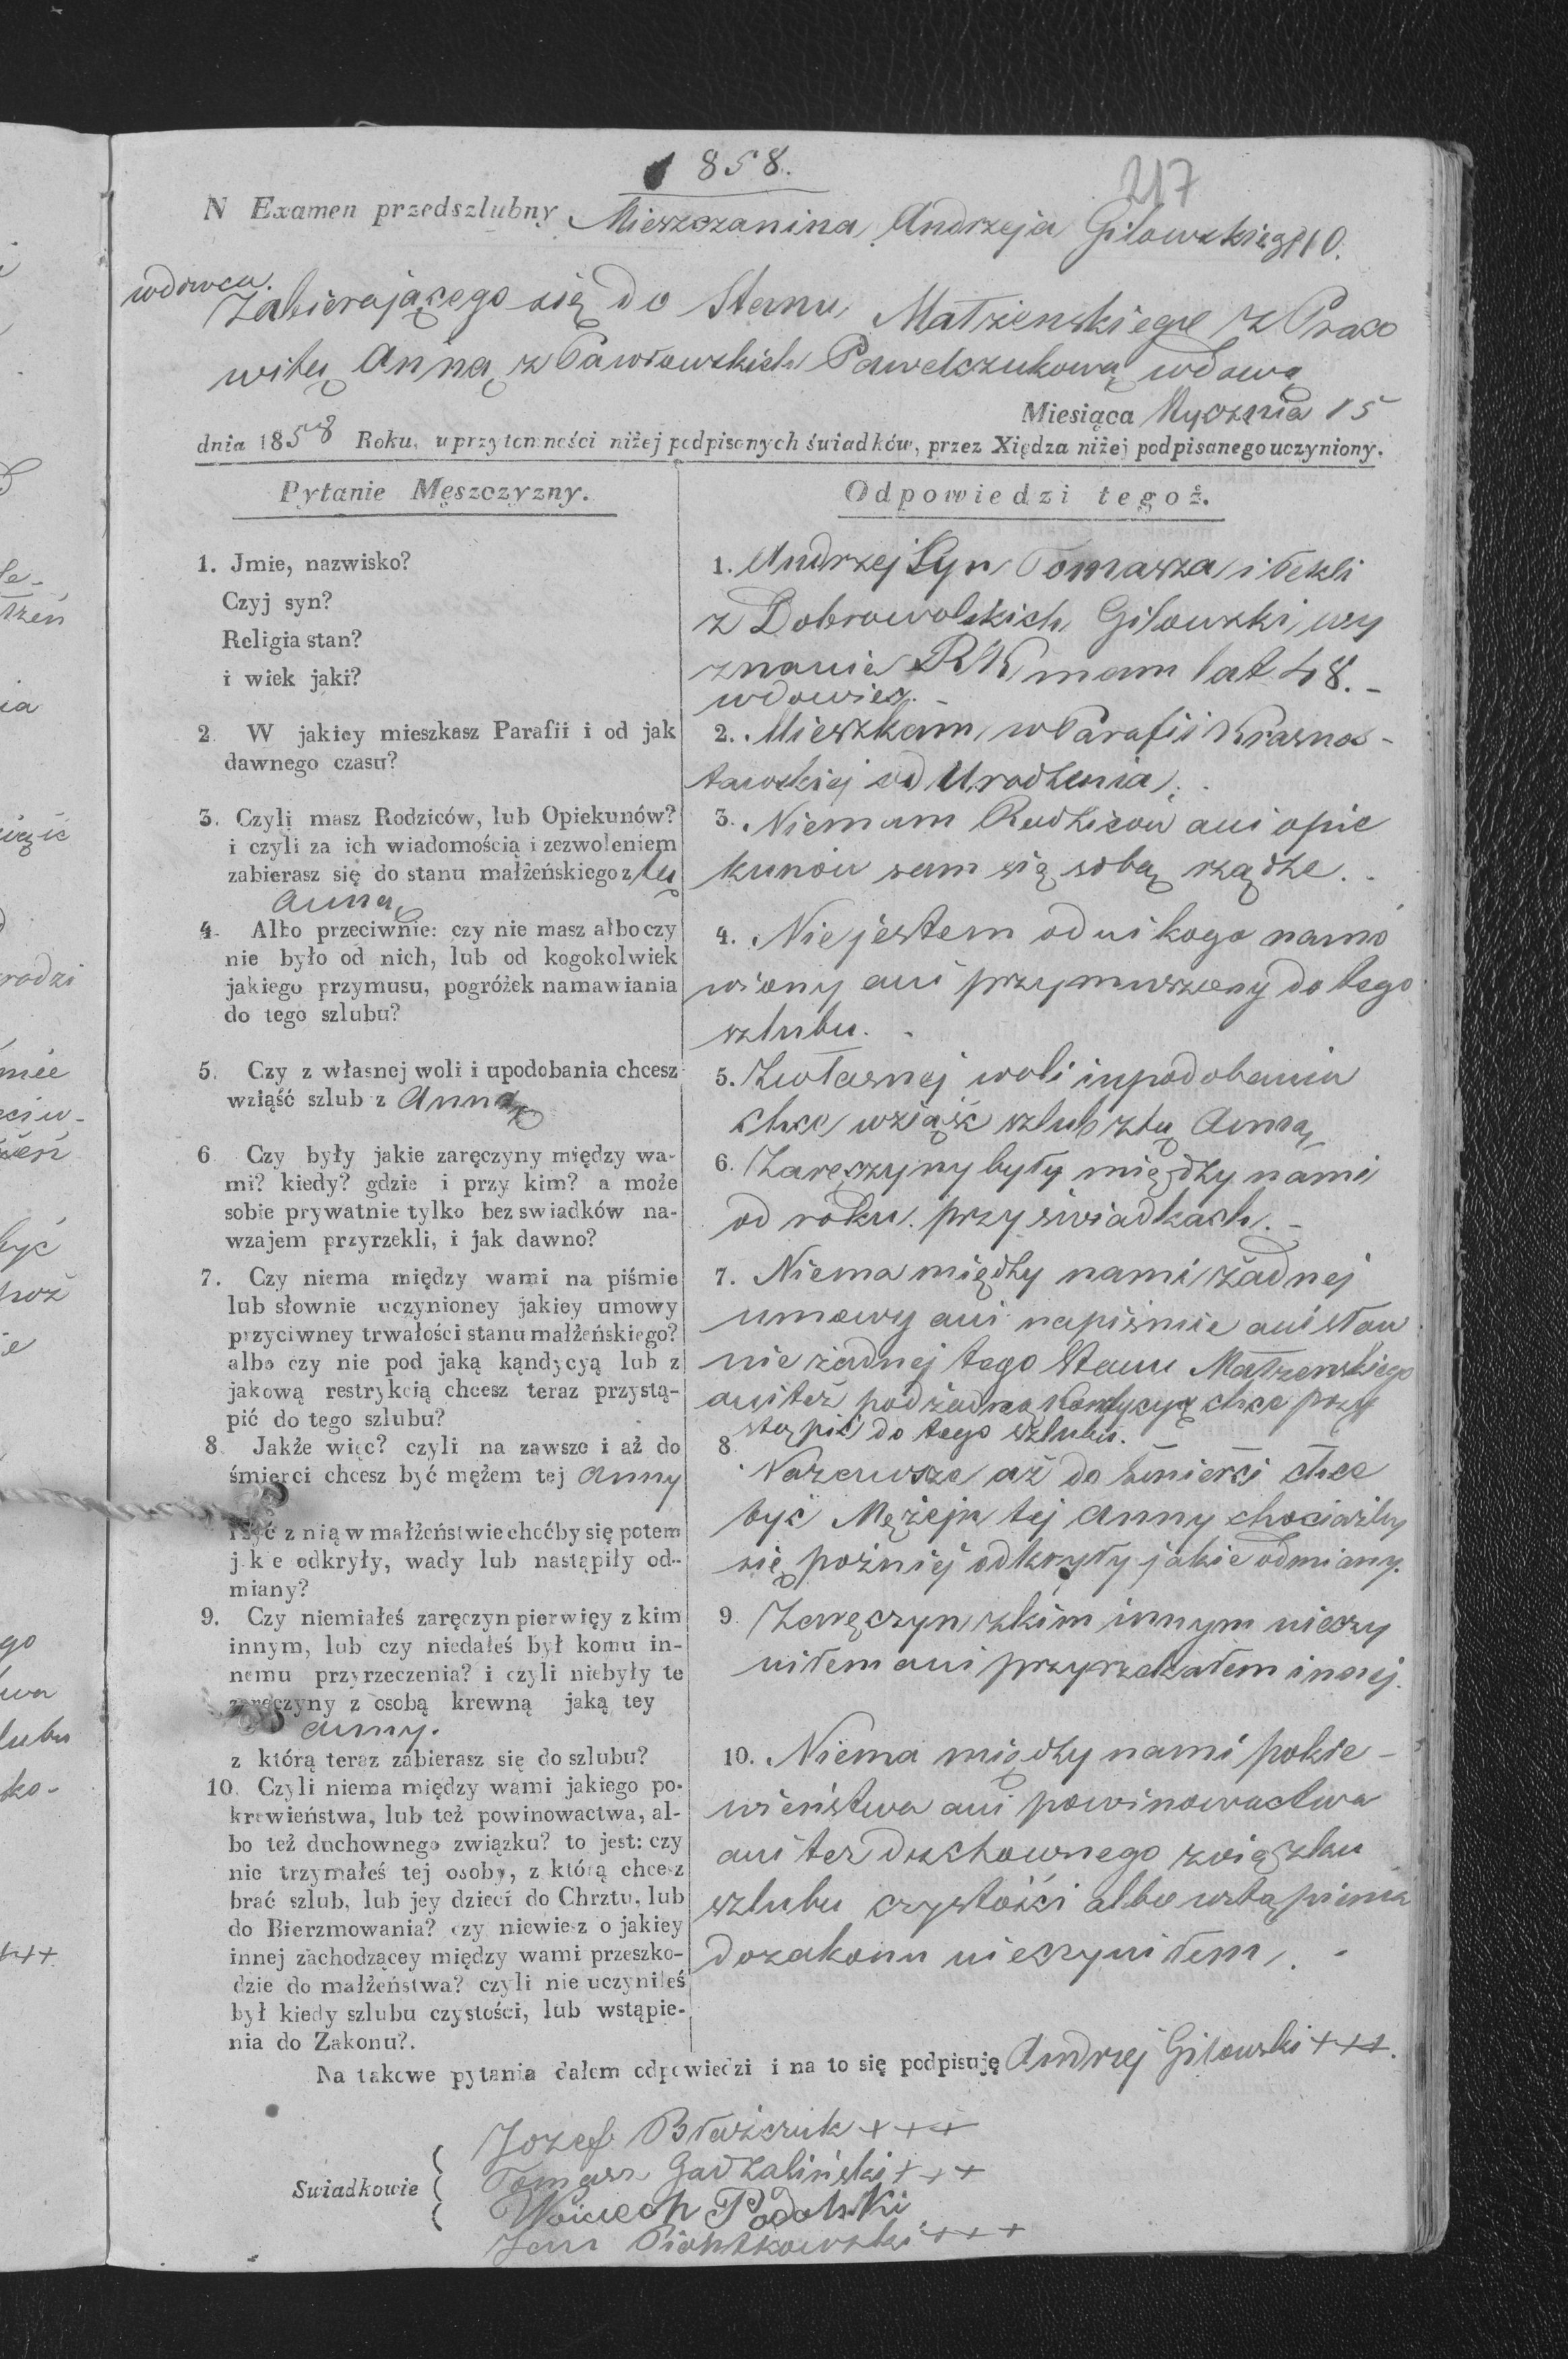 1858.
217
N Examen przedszlubny Mieszczanina Andrzeja Gilowskiego 110.
wdowca.
Zabierającego się do Stanu Małżenskiego z Praco
witą Anną z Pawłowskich Pawelczukową wdową
Miesiąca Stycznia 15
dnia 1858 Roku, w przytomności niżej podpisanych świadków, przez Xiędza niżej podpisanego uczyniony.
Pytanie Męszczyzny.
1. Jmie, nazwisko?
Czyj syn?
Religia stan?
i wiek jaki?
2 W jakiey mieszkasz Parafii i od jak
dawnego czasu?
3. Czyli masz Rodziców, lub Opiekunów?
i czyli za ich wiadomością i zezwoleniem
zabierasz się do stanu małżeńskiego z tą
Anną
4. Albo przeciwnie: czy nie masz albo czy
nie było od nich, lub od kogokolwiek
jakiego przymusu, pogróżek namawiania
do tego szlubu?
5. Czy z własnej woli i upodobania chcesz
wziąść szlub z Anną
6 Czy były jakie zaręczyny między wa-
mi? kiedy? gdzie i przy kim? a może
sobie prywatnie tylko bez swiadków na-
wzajem przyrzekli, i jak dawno?
7. Czy niema między wami na piśmie
lub słownie uczynioney jakiey umowy
przyciwney trwałości stanu małżeńskiego?
albo czy nie pod jaką kąndycyą lub z
jakową restrykcią chcesz teraz przystą-
pić do tego szlubu?
8 Jakże więc? czyli na zawsze i aż do
śmierci chcesz być mężem tej Anny
i być z nią w małżeństwie choćby się potem
j k e odkryły, wady lub nastąpiły od-
miany?
9. Czy niemiałeś zaręczyn pierwięy z kim
innym, lub czy niedałeś był komu in-
nemu przyrzeczenia? i czyli niebyły te
zaręczyny z osobą krewną jaką tey
Anny.
z którą teraz zabierasz się do szlubu?
10. Czyli niema między wami jakiego po-
krewieństwa, lub też powinowactwa, al-
bo też duchownego związku? to jest: czy
nie trzymałeś tej osoby, z którą chcesz
brać szlub, lub jey dzieci do Chrztu, lub
do Bierzmowania? czy niewiesz o jakiey
innej zachodzącey między wami przeszko-
dzie do małżeństwa? czyli nie uczyniłeś
był kiedy szlubu czystości, lub wstąpie-
nia do Zakonu?.
Odpowiedzi tegoż.
1. Andrzej Syn Tomasza i Tekli
z Dobrowolskich Gilowski, wy
znania RK mam lat 48. -
wdowiec. -
2. Mieszkam w Parafii Krasnos-
tawskiej od Urodzenia.
3. Niemam Rodziców ani opie
kunów sam się sobą rządze.
4. Nie jestem od nikogo namó
wiony ani przymuszony do tego
szlubu.
5. Zwłasnej woli i upodobania
chce wziąść szlub z tą Anną
6. Zaręczyny były między nami
od roku przy świadkach. -
7. Niema między nami żadnej
umowy ani napiśmie ani słow
nie żadnej tego Stanu Małżenskiego
ani też pod żadną kondycyą chce przy
stąpić do tego szlubu.
8. Nazawsze aż do śmierci chce
być Mężem tej Anny chociażby
się poźniej odkryły jakie odmiany.
9. Zaręczyn z kim innym nieczy
niłem ani przyrzekałem innej.
10. Niema między nami pokre-
wieństwa ani powinowactwa
ani też duchownego związku
szlubu czystości albo wstąpienia
dozakonu nieczyniłem. -
Na takowe pytania dałem odpowiedzi i na to się podpisuję Andrzej Gilowski +++.
Swiadkowie
Jozef Błaszczuk +++
Tomasz Gadzaliński +++
Woiciech Podolski
Jan Piontkowski +++